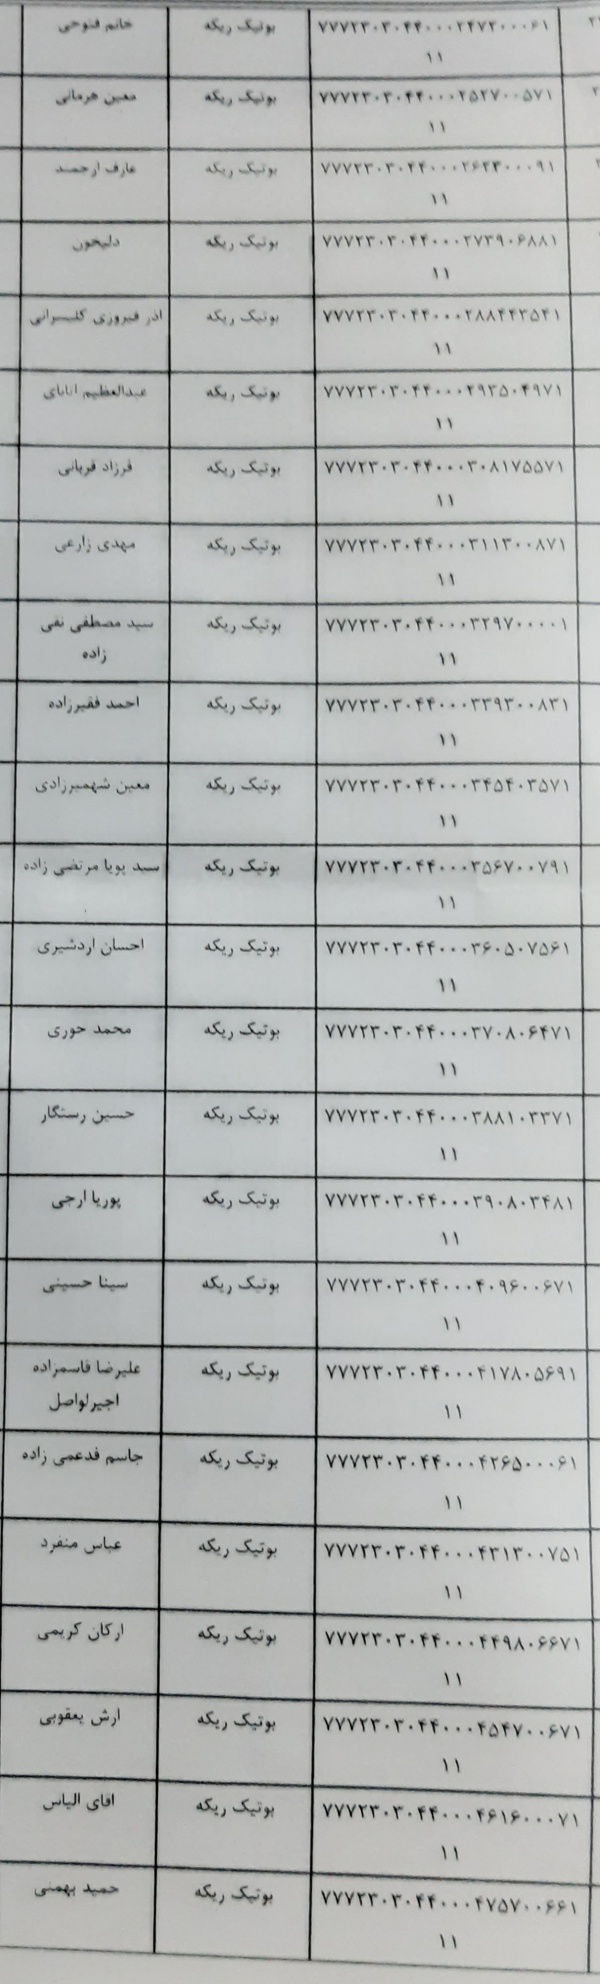 ۷۷۷۲۳۰۳۰۴۴۰۰۰۲۴۷۳۰۰۰۶۱ بوتیک ریکه خانم فتوحی
۱۱
۷۷۷۲۳۰۳۰۴۴۰۰۰۲۵۲۷۰۰۵۷۱ بوتیک ریکه معین هرمانی
۱۱
۷۷۷۲۳۰۳۰۴۴۰۰۰۲۶۲۳۰۰۰۹۱ بوتیک ریکه عارف ارجمند
۱۱
۷۷۷۲۳۰۳۰۴۴۰۰۰۲۷۳۹۰۶۸۸۱ بوتیک ریکه دلیجون
۱۱
۷۷۷۲۳۰۳۰۴۴۰۰۰۲۸۸۴۴۳۵۴۱ بوتیک ریکه اذر فیروزی گلیسرانی
۱۱
۷۷۷۲۳۰۳۰۴۴۰۰۰۲۹۳۵۰۴۹۷۱ بوتیک ریکه عبدالعظیم اتابای
۱۱
۷۷۷۲۳۰۳۰۴۴۰۰۰۳۰۸۱۷۵۵۷۱ بوتیک ریکه فرزاد قربانی
۱۱
۷۷۷۲۳۰۳۰۴۴۰۰۰۳۱۱۳۰۰۸۷۱ بوتیک ریکه مهدی زارعی
۱۱
۷۷۷۲۳۰۳۰۴۴۰۰۰۳۲۹۷۰۰۰۰۱ بوتیک ریکه سید مصطفی نقی
۱۱ زاده
۷۷۷۲۳۰۳۰۴۴۰۰۰۳۳۹۳۰۰۸۳۱ بوتیک ریکه احمد فقیرزاده
۱۱
۷۷۷۲۳۰۳۰۴۴۰۰۰۳۴۵۴۰۳۵۷۱ بوتیک ریکه معین شهمیرزادی
۱۱
۷۷۷۲۳۰۳۰۴۴۰۰۰۳۵۶۷۰۰۷۹۱ بوتیک ریکه سید پویا مرتضی زاده
۱۱
۷۷۷۲۳۰۳۰۴۴۰۰۰۳۶۰۵۰۷۵۶۱ بوتیک ریکه احسان اردشیری
۱۱
۷۷۷۲۳۰۳۰۴۴۰۰۰۳۷۰۸۰۶۴۷۱ بوتیک ریکه محمد حوری
۱۱
۷۷۷۲۳۰۳۰۴۴۰۰۰۳۸۸۱۰۳۳۷۱ بوتیک ریکه حسین رستگار
۱۱
۷۷۷۲۳۰۳۰۴۴۰۰۰۳۹۰۸۰۳۴۸۱ بوتیک ریکه پوریا ارجی
۱۱
۷۷۷۲۳۰۳۰۴۴۰۰۰۴۰۹۶۰۰۶۷۱ بوتیک ریکه سینا حسینی
۱۱
۷۷۷۲۳۰۳۰۴۴۰۰۰۴۱۷۸۰۵۶۹۱ بوتیک ریکه علیرضا قاسمزاده
۱۱ اجیرلواصل
۷۷۷۲۳۰۳۰۴۴۰۰۰۴۲۶۵۰۰۰۶۱ بوتیک ریکه جاسم قدعمی زاده
۱۱
۷۷۷۲۳۰۳۰۴۴۰۰۰۴۳۱۳۰۰۷۵۱ بوتیک ریکه عباس منفرد
۱۱
۷۷۷۲۳۰۳۰۴۴۰۰۰۴۴۹۸۰۶۶۷۱ بوتیک ریکه ارکان کریمی
۱۱
۷۷۷۲۳۰۳۰۴۴۰۰۰۴۵۴۷۰۰۶۷۱ بوتیک ریکه ارش یعقوبی
۱۱
۷۷۷۲۳۰۳۰۴۴۰۰۰۴۶۱۶۰۰۰۷۱ بوتیک ریکه اقای الیاس
۱۱
۷۷۷۲۳۰۳۰۴۴۰۰۰۴۷۵۷۰۰۶۶۱ بوتیک ریکه حمید بهمنی
۱۱